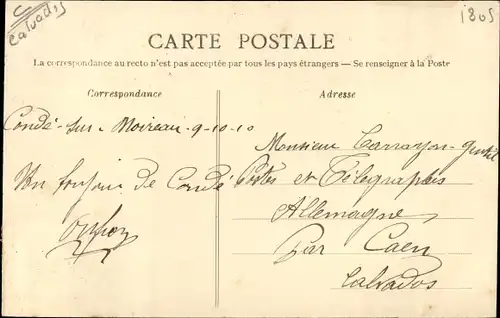 C
Calvados
1805
CARTE POSTALE
La correspondance au recto n'est pas acceptée par tous les pays étrangers — Se renseigner à la Poste
Correspondance
Adresse
Condé-sur-Noireau-9-10-10
Un bonjour de Condé
Monsieur
Postes et Télégraphes
Allemagne
Par Caen
Calvados